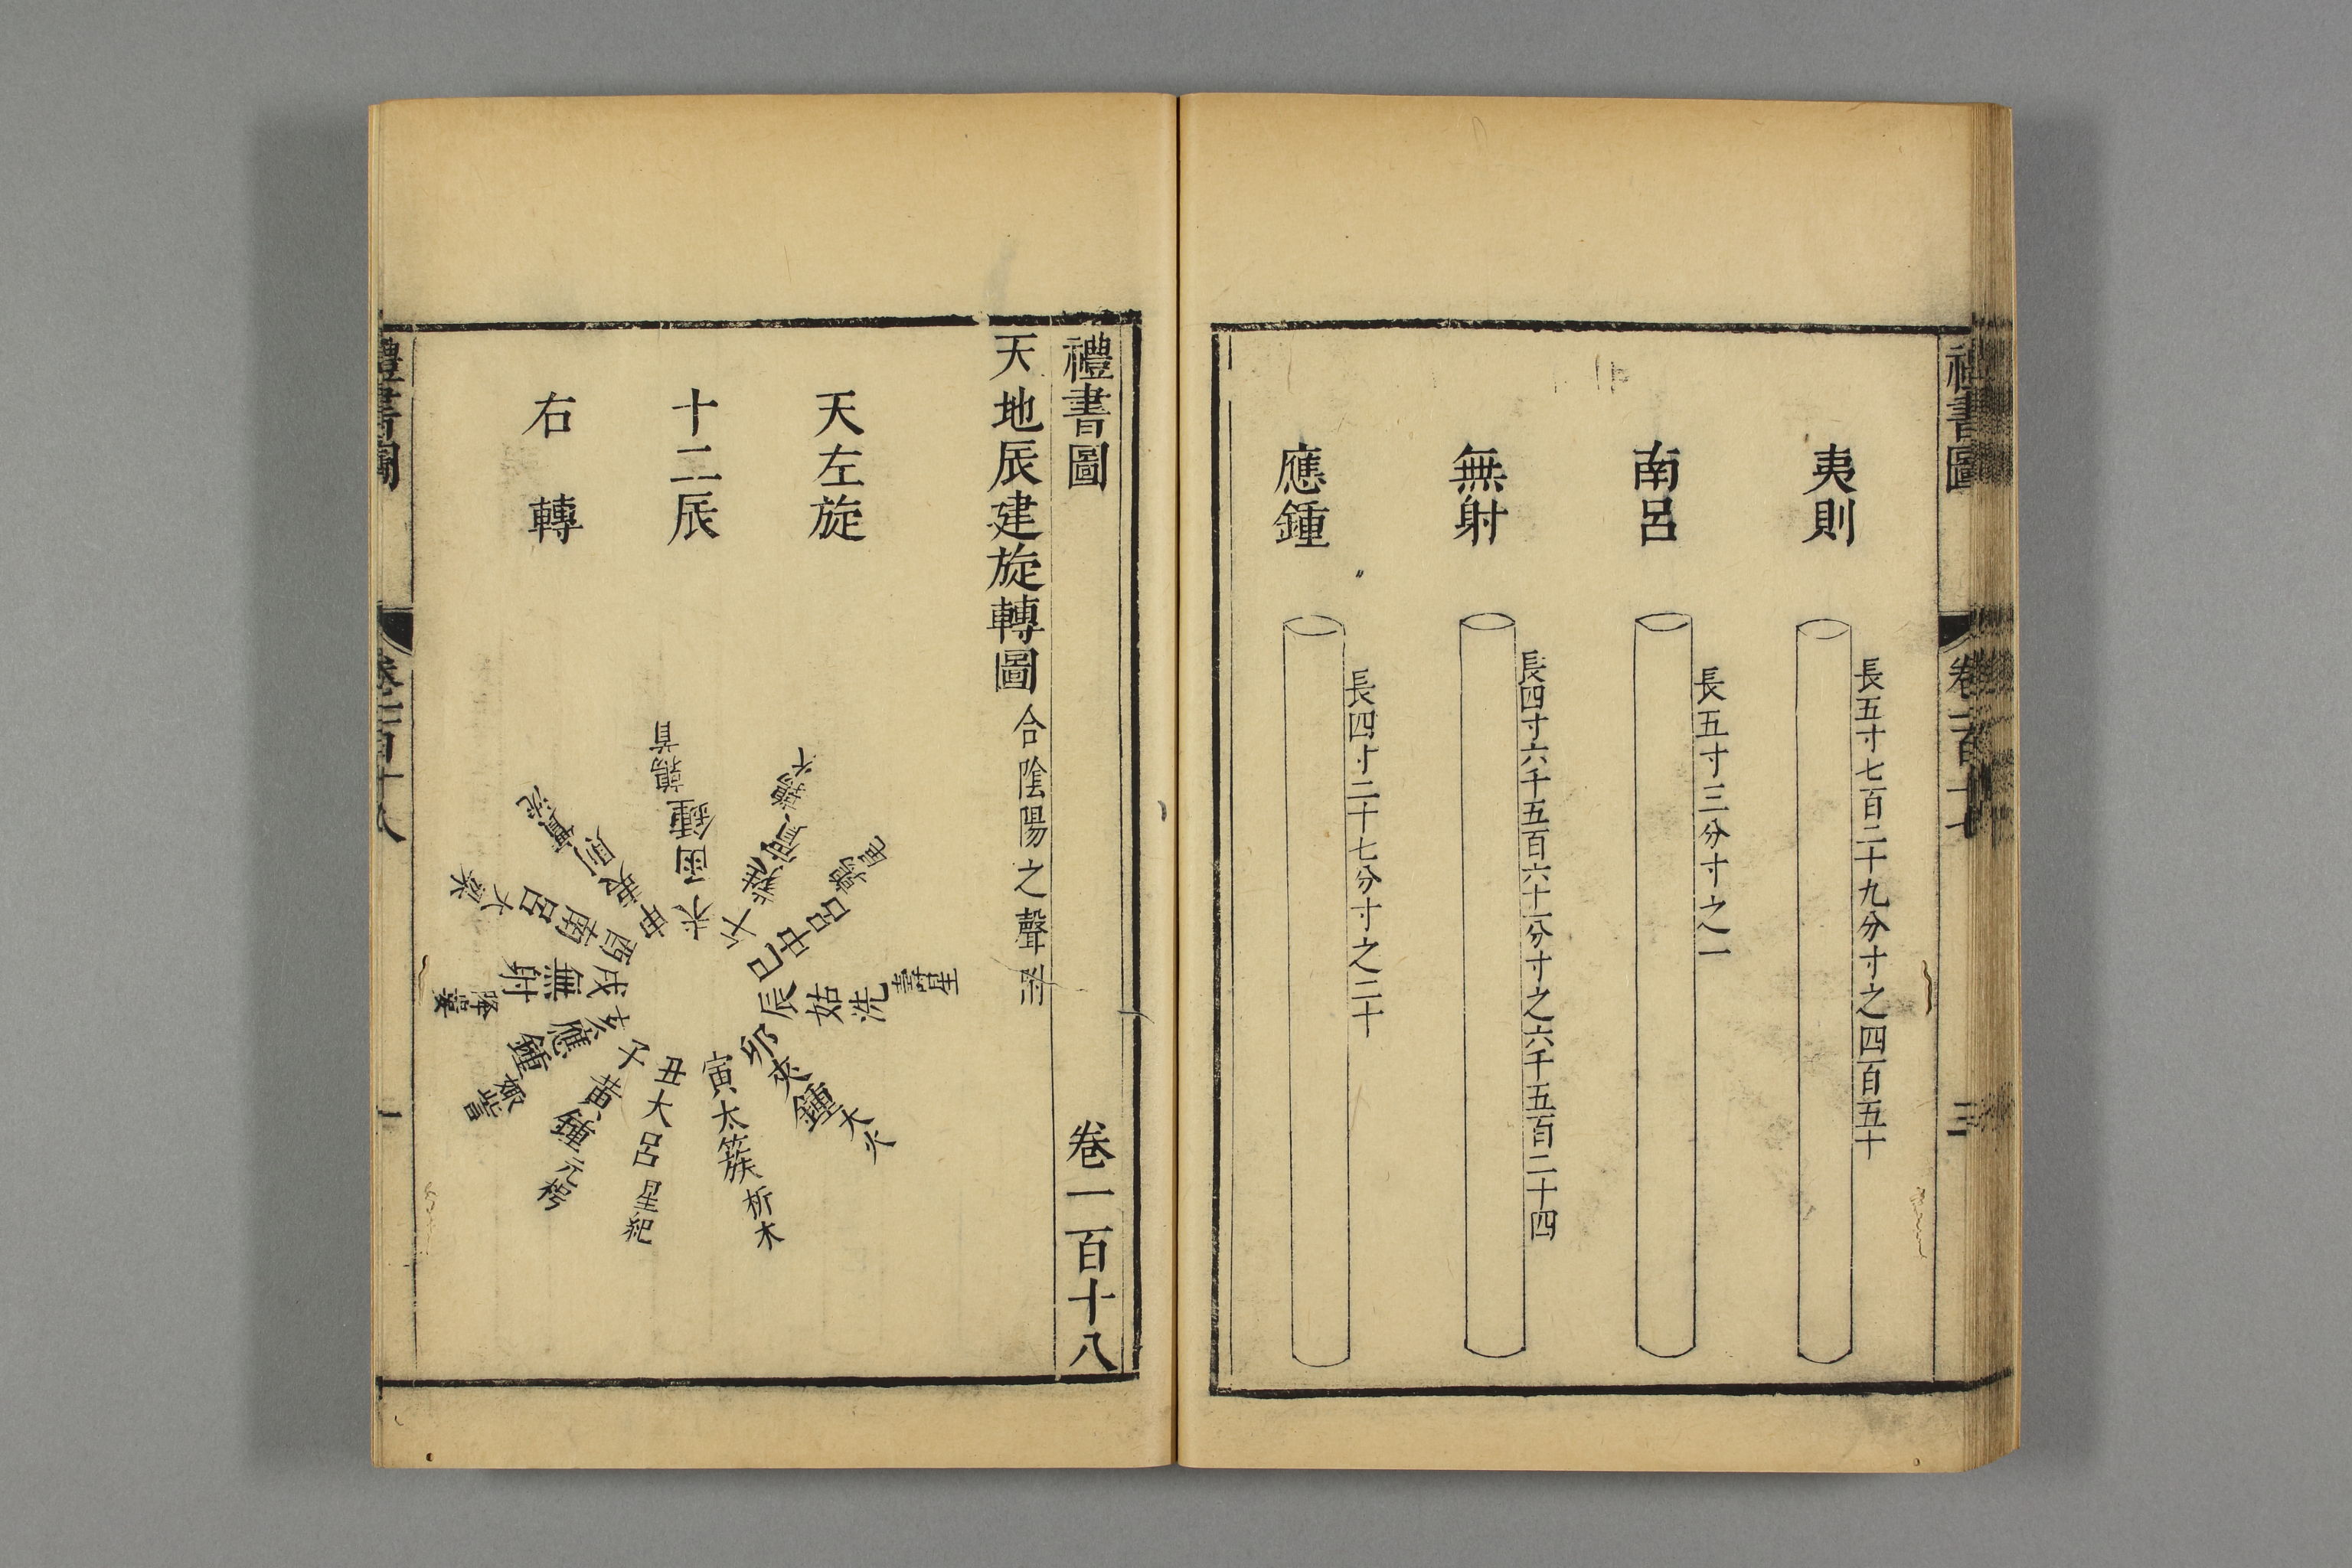 禮書圖 卷一百十七 三
夷則
長五寸七百二十九分寸之四百五十
南呂
長五寸三分寸之一
無射
長四寸六千五百六十一分寸之六千五百二十四
應鍾
長四寸二十七分寸之二十
禮書圖 卷一百十八
天地辰建旋轉圖 合陰陽之聲附
天左旋
十二辰
右轉
子黃鍾元枵
丑大呂星紀
寅太簇析木
卯夾鍾大火
辰姑洗壽星
巳中呂鶉尾
午蕤賓鶉火
未函鍾鶉首
申夷則實沈
酉南呂大梁
戌無射降婁
亥應鍾娵訾
禮書圖 卷一百十八 一